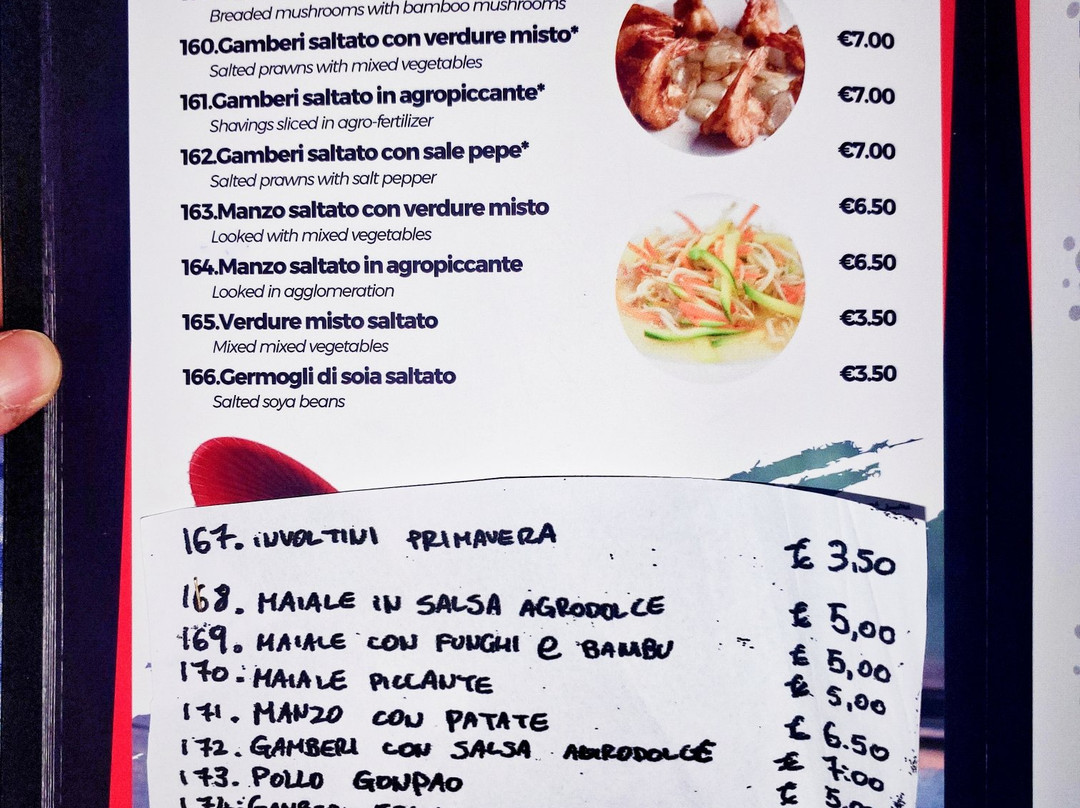 Breaded mushrooms with bamboo mushrooms
160.Gamberi saltato con verdure misto* €7.00
Salted prawns with mixed vegetables
161.Gamberi saltato in agropiccante* €7.00
Shavings sliced in agro-fertilizer
162.Gamberi saltato con sale pepe* €7.00
Salted prawns with salt pepper
163.Manzo saltato con verdure misto €6.50
Looked with mixed vegetables
164.Manzo saltato in agropiccante €6.50
Looked in agglomeration
165.Verdure misto saltato €3.50
Mixed mixed vegetables
166.Germogli di soia saltato €3.50
Salted soya beans
167. INVOLTINI PRIMAVERA € 3,50
168. MAIALE IN SALSA AGRODOLCE € 5,00
169. MAIALE CON FUNGHI e BAMBU € 5,00
170. MAIALE PICCANTE € 5,00
171. MANZO CON PATATE € 6.50
172. GAMBERI CON SALSA AGRODOLCE € 7.00
173. POLLO GONPAO €